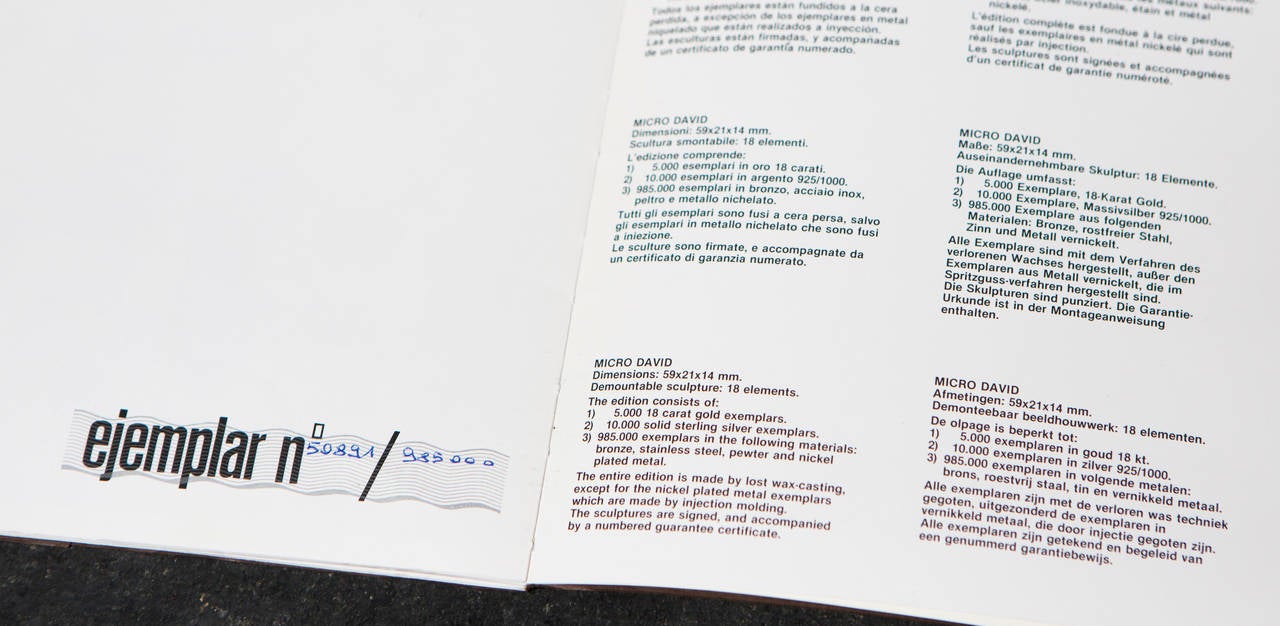 Todos los ejemplares están fundidos a la cera
perdida, a excepción de los ejemplares en metal
niquelado que están realizados a inyección.
Las esculturas están firmadas, y acompañadas
de un certificato de garantía numerado.
inoxydable, étain et métal
nickelé.
L'édition complète est fondue à la cire perdue,
sauf les exemplaires en métal nickelé qui sont
réalisés par injection.
Les sculptures sont signées et accompagnées
d'un certificat de garantie numéroté.
MICRO DAVID
Dimensioni: 59x21x14 mm.
Scultura smontabile: 18 elementi.
L'edizione comprende:
1) 5.000 esemplari in oro 18 carati.
2) 10.000 esemplari in argento 925/1000.
3) 985.000 esemplari in bronzo, acciaio inox,
peltro e metallo nichelato.
Tutti gli esemplari sono fusi a cera persa, salvo
gli esemplari in metallo nichelato che sono fusi
a iniezione.
Le sculture sono firmate, e accompagnate da
un certificato di garanzia numerato.
MICRO DAVID
Maße: 59x21x14 mm.
Auseinandernehmbare Skulptur: 18 Elemente.
Die Auflage umfasst:
1) 5.000 Exemplare, 18-Karat Gold.
2) 10.000 Exemplare, Massivsilber 925/1000.
3) 985.000 Exemplare aus folgenden
Materialen: Bronze, rostfreier Stahl,
Zinn und Metall vernickelt.
Alle Exemplare sind mit dem Verfahren des
verlorenen Wachses hergestellt, außer den
Exemplaren aus Metall vernickelt, die im
Spritzguss-verfahren hergestellt sind.
Die Skulpturen sind punziert. Die Garantie-
Urkunde ist in der Montageanweisung
enthalten.
MICRO DAVID
Dimensions: 59x21x14 mm.
Demountable sculpture: 18 elements.
The edition consists of:
1) 5.000 18 carat gold exemplars.
2) 10.000 solid sterling silver exemplars.
3) 985.000 exemplars in the following materials:
bronze, stainless steel, pewter and nickel
plated metal.
The entire edition is made by lost wax-casting,
except for the nickel plated metal exemplars
which are made by injection molding.
The sculptures are signed, and accompanied
by a numbered guarantee certificate.
MICRO DAVID
Afmetingen: 59x21x14 mm.
Demonteebaar beeldhouwwerk: 18 elementen.
De olpage is beperkt tot:
1) 5.000 exemplaren in goud 18 kt.
2) 10.000 exemplaren in zilver 925/1000.
3) 985.000 exemplaren in volgende metalen:
brons, roestvrij staal, tin en vernikkeld metaal.
Alle exemplaren zijn met de verloren was techniek
gegoten, uitgezonderd de exemplaren in
vernikkeld metaal, die door injectie gegoten zijn.
Alle exemplaren zijn getekend en begeleid van
een genummerd garantiebewijs.
ejemplar nº 50891 / 985000